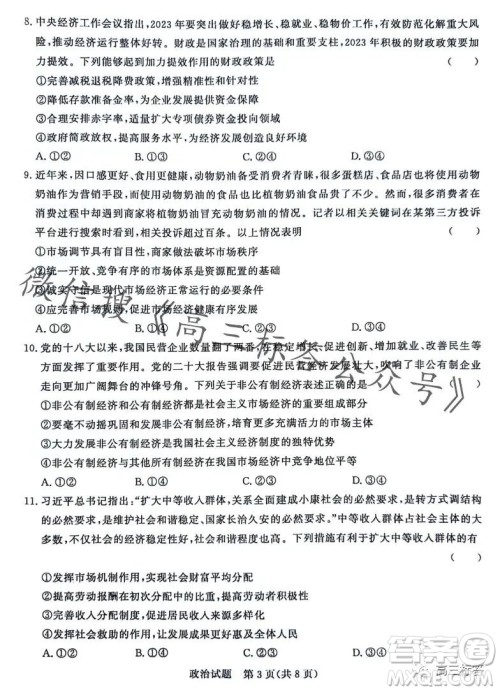 8. 中央经济工作会议指出，2023年要突出做好稳增长、稳就业、稳物价工作，有效防范化解重大风
险，推动经济运行整体好转。财政是国家治理的基础和重要支柱，2023年积极的财政政策要加
力提效。下列能够起到加力提效作用的财政政策是（　　）
①完善减税退税降费政策，增强市场主体发展信心
②下调存款准备金率，为企业发展提供更多资金支持
③合理安排赤字率，适量扩大专项债券资金投资规模
④减少政府财政支出，为经济发展创造良好环境
A. ①②　B. ①③　C. ②④　D. ③④
9. 近年来，因口感更好、食用更健康，动物奶油备受消费者青睐，很多蛋糕店、食品店将使用动物
奶油作为营销手段，而且使用动物奶油的食品比使用植物奶油的食品贵了不少。然而，很多消
费者在购买时却遇到了商家将植物奶油冒充动物奶油的情况。记者以相关关键词在某第三方投诉
平台进行搜索时看到，相关投诉超过百条。以上情况表明（　　）
①市场调节具有局限性，商家做法破坏市场秩序
②统一开放、竞争有序的市场体系是资源配置的基础
③诚实守信是现代市场经济正常运行的必要条件
④规则意识应贯彻始终，促进市场经济健康有序发展
A. ①②　B. ①③　C. ②④　D. ③④
10. 党的十八大以来，我国民营企业数量翻了两番，在稳定增长、促进创新、增加就业、改善民生等
方面发挥了重要作用。党的二十大报告强调促进民营经济发展壮大，吹响了非公有制企业
走向更加广阔舞台的冲锋号角。下列对非公有制经济认识正确的是（　　）
①非公有制经济和公有制经济都是社会主义市场经济的重要组成部分
②要毫不动摇地鼓励、支持、引导非公有制经济发展
③非公有制经济发挥主导作用是基本经济制度的独特优势
④非公有制经济和公有制经济在国民经济中的地位平等
A. ①②　B. ①③　C. ②④　D. ③④
11. 习近平总书记指出：“扩大中等收入群体，关系全面建成小康社会的必然要求，是转方式调结构
的必然要求，是维护社会和谐稳定、国家长治久安的必然要求。”中等收入群体在社会占据大
多数，社会结构会更加稳定、社会更加和谐。下列措施有利于扩大中等收入群体的有
（　　）
①发挥市场机制作用，实现社会财富平均分配
②提高劳动者薪资水平，增强劳动者积极性
③完善市场评价要素贡献并按贡献分配的机制
④发挥第三次分配作用，促进社会公平正义
A. ①②　B. ①③　C. ②④　D. ③④
政治试题　第3页（共8页）
微信搜《高三标答公众号》
高三标答